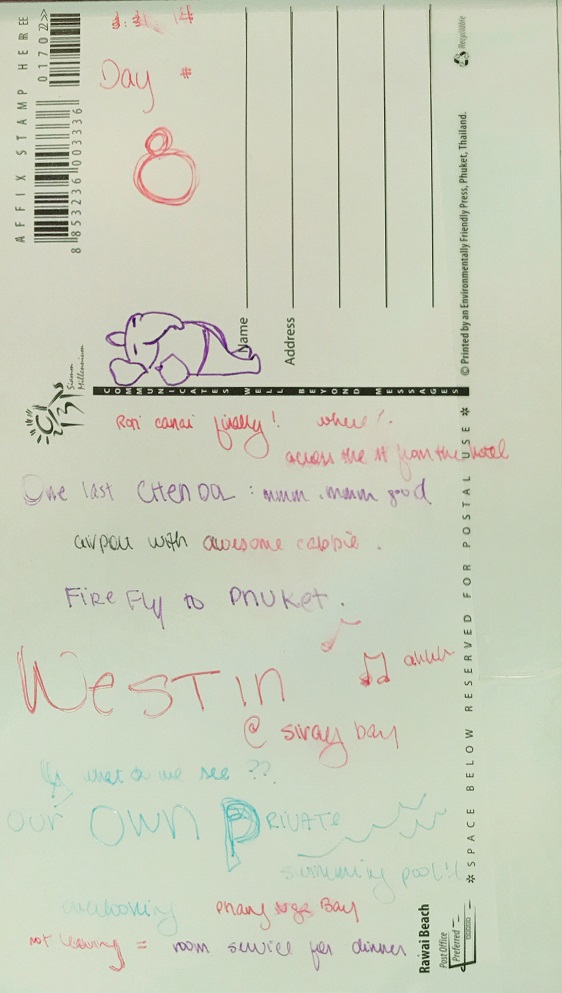 AFFIX STAMP HERE
0170
8 853236 003336
Day #
8
Name
Address
Recyclable
© Printed by an Environmentally Friendly Press, Phuket, Thailand.
Siam
Millennium
COMMUNICATES WELL BEYOND MESSAGES
Roti canai finally! where?
across the st from the hotel
One last CHENDOL : mmm.mmm good
airport with awesome cabbie.
FireFly to PHUKET.
WESTIN
@ siray bay
what do we see ??
our OWN PRIVATE
swimming pool!!
overlooking Phang nga Bay
not leaving = room service for dinner
*SPACE BELOW RESERVED FOR POSTAL USE*
Rawai Beach
Post Office
Preferred